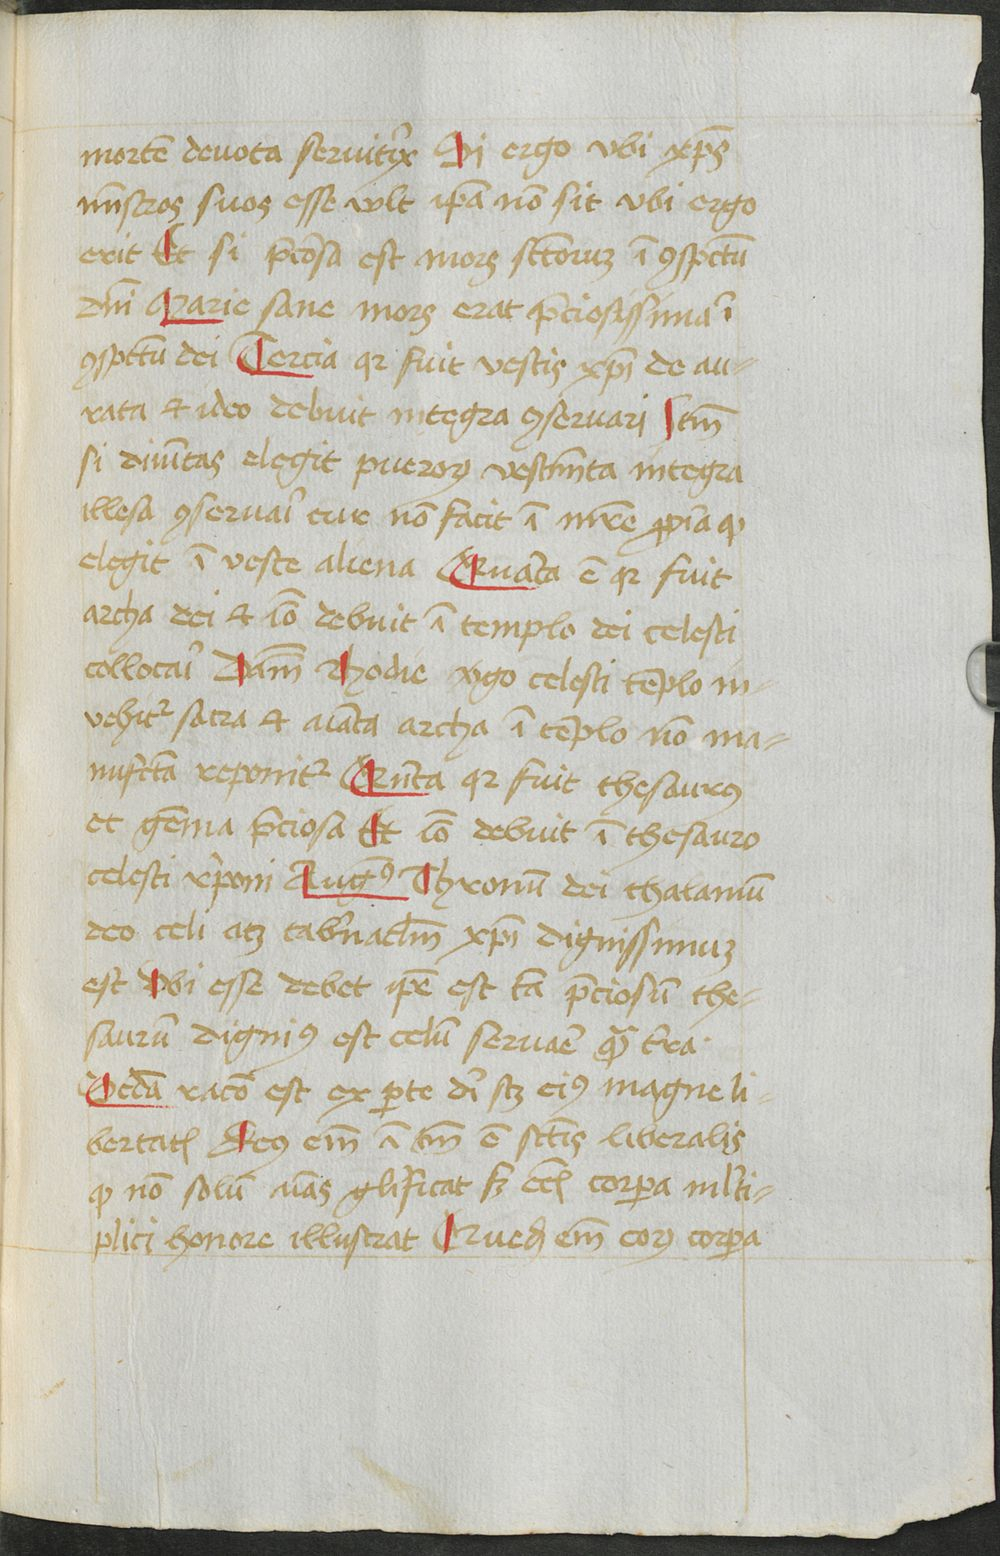 mortē deuota seruitⁱx Si ergo vbi xp̄s
mīstros suos esse vult ip̄a nō sit vbi ergo
erit Et si p̄cōsa est mors sctoruꝫ ī ꝯspctū
dn̄i Marie sane mors erat p̄ciosissima ī
ꝯspctū dei Tercia qꝛ fuit vestis xp̄i de au-
rata et ideo debuit integra ꝯseruari Itm̄
si diuītas elegit pueroꝝ vestīmta integra
illesa ꝯseruaī cur nō facit ī mr̄e ꝓp̄ia qd
elegit ī veste aliena Quarta ē qꝛ fuit
archa dei et iō debuit ī templo dei celesti
collocaī Dam̄ hodie v̄go celesti tēplo in-
vehitᷣ sacra et aīata archa ī tēplo nō ma-
nufcta reponitᷣ Quīta qꝛ fuit thesaurꝰ
et gēma p̄ciosa Et iō debuit ī thesauro
celesti r̄poni Augꝰ Thronū dei thalamū
deo celi atꝫ tabn̄aclm̄ xp̄i dignissimuꝫ
est vbi esse debet ip̄e est tā p̄ciosū the-
saurū digniꝰ est celū seruaē qᷓ tr̄a
Secda racō est ex ꝑte dī scꝫ eiꝰ magne li-
bertatꝭ Deꝰ em̄ ī tm̄ ē sctis liberalis
qd nō solū aīas glīficat sꝫ ecꝭ corꝑa mlti-
plici honore illustrat Quedā em̄ eoꝝ corꝑa